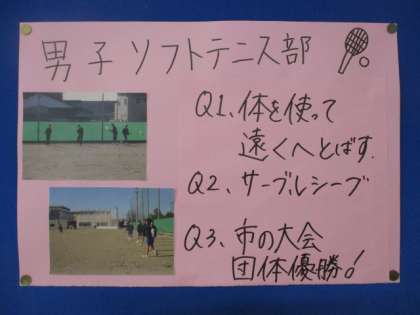 男子ソフトテニス部
Q1、体を使って
遠くへとばす.
Q2、サーブルシーブ
Q3、市の大会
団体優勝!